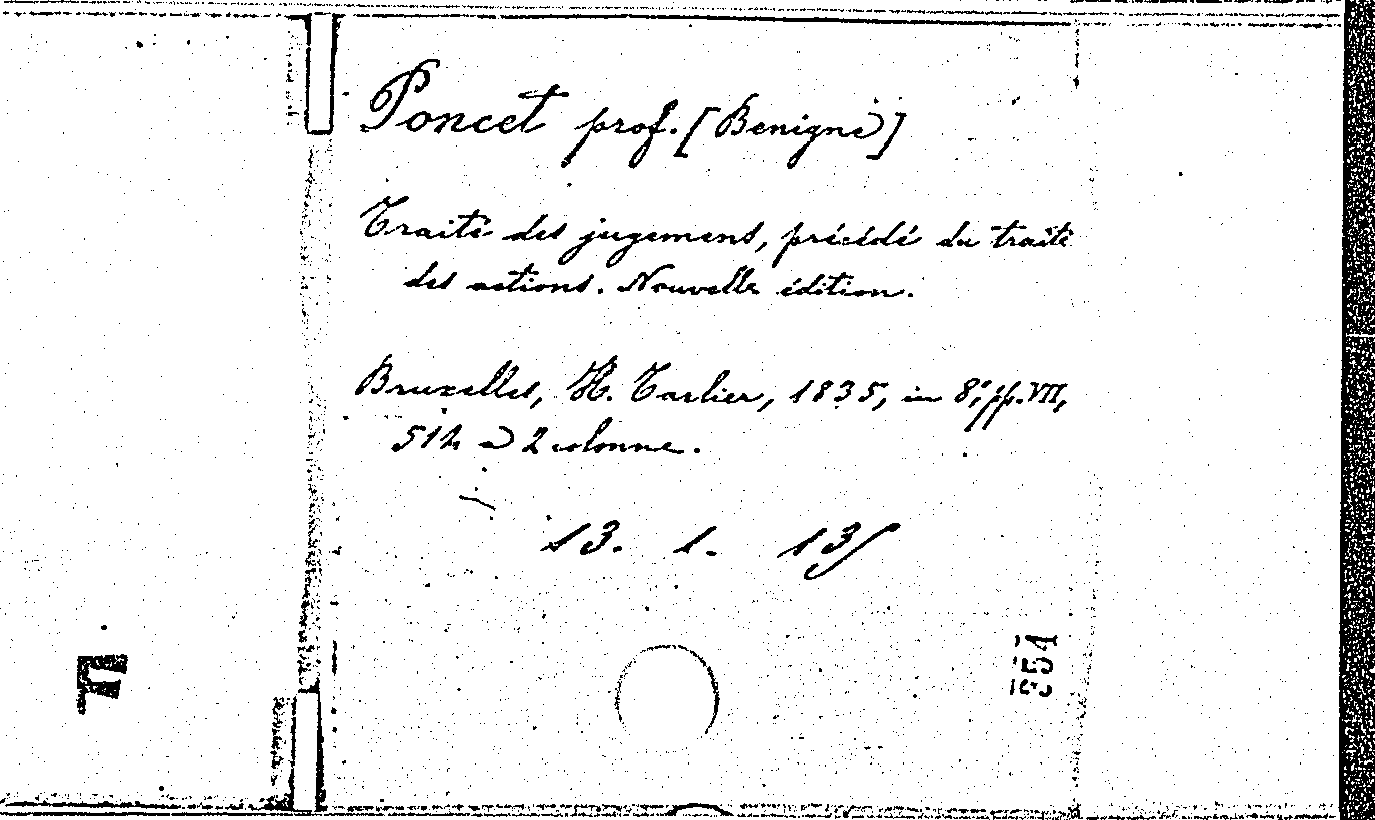 Poncet prof. [Benigne]
Traité des jugemens, précédé du traité
des actions. Nouvelle édition.
Bruxelles, H. Tarlier, 1835, in 8°, pp. VII,
512 a 2 colonne.
13. 1. 13